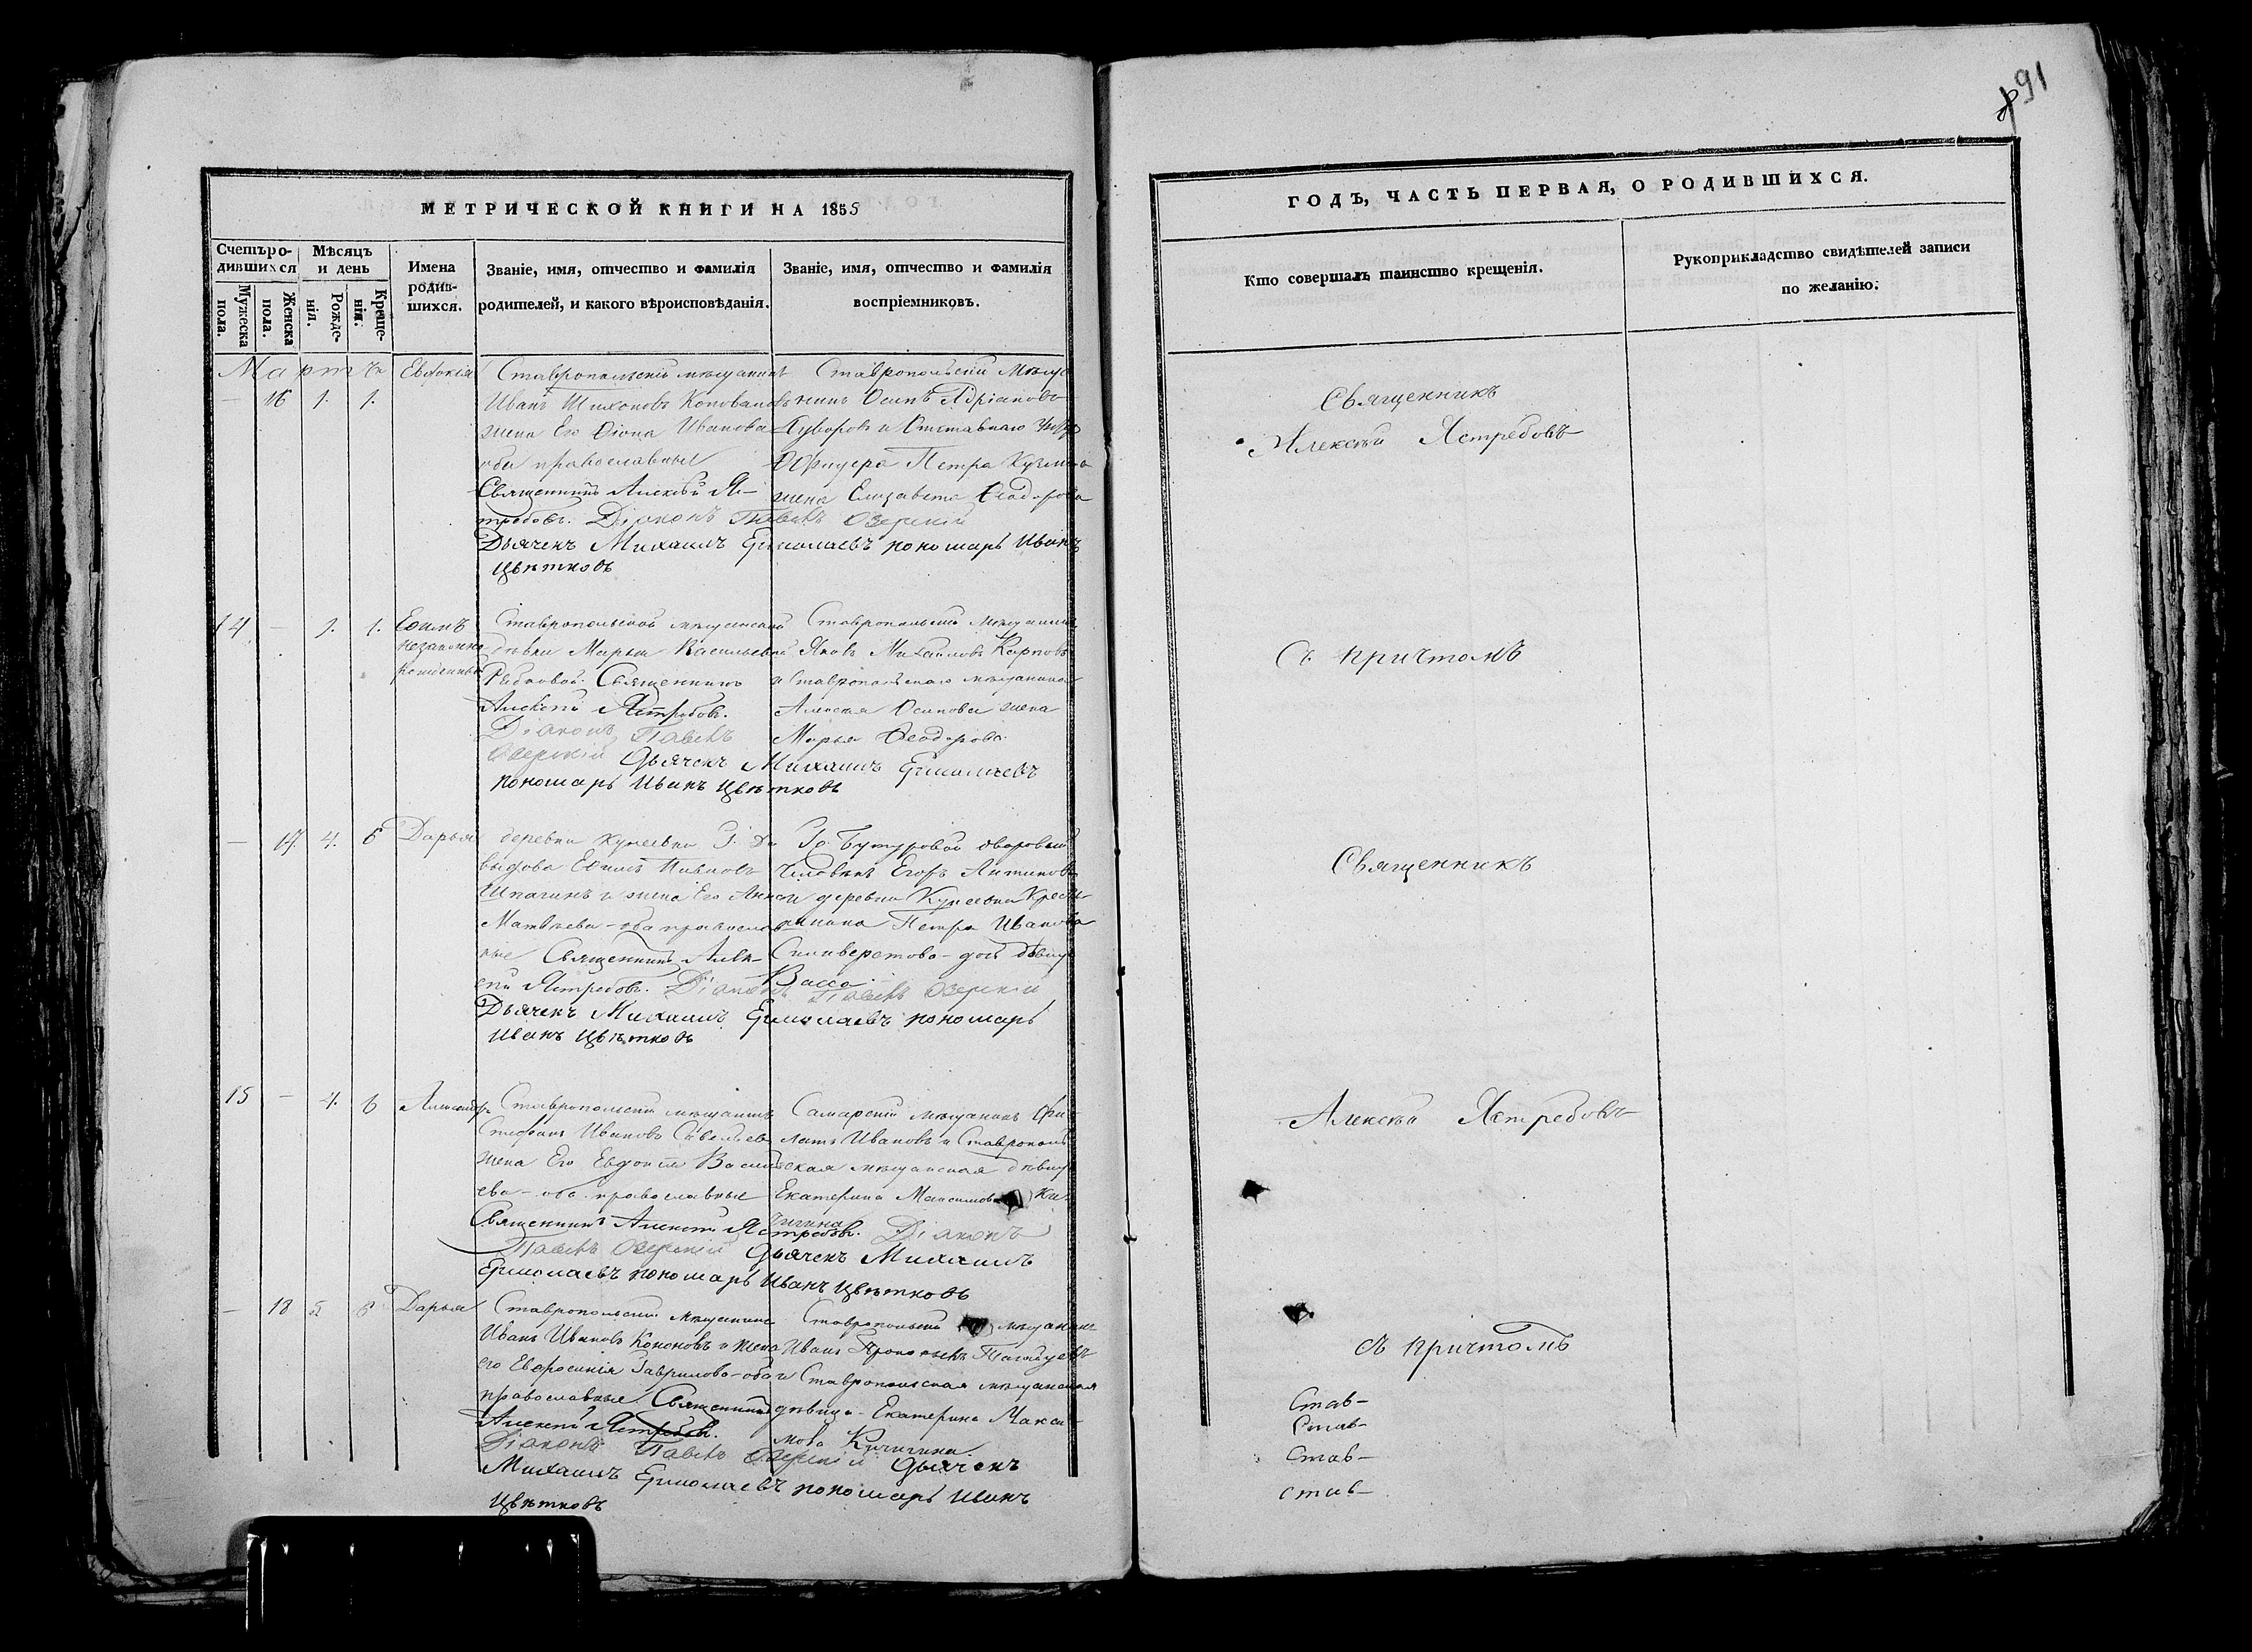 191
МЕТРИЧЕСКОЙ КНИГИ НА 1855
Счетъ ро-
дившихся
Мужеска пола.
Женска пола.
Мѣсяцъ
и день
Рожде-
нія.
Креще-
нія.
Имена
родив-
шихся.
Званіе, имя, отчество и фамилія
родителей, и какого вѣроисповѣданія.
Званіе, имя, отчество и фамилія
воспріемниковъ.
Мартъ
— 16 1. 1.
Евдокія
Ставропольскій мѣщанинъ
Иванъ Тихоновъ Коноваловъ
жена Его Ѳіона Иванова
оба православные
Ставропольскій Мѣща
нинъ Осипъ Адріановъ
Суворовъ и Отставнаго Унтеръ
Офицера Петра Кузмина
жена Елизавета Ѳеодорова
Священникъ Алексѣй Яс-
требовъ. Діаконъ Павелъ Озерскій
Дьячекъ Михаилъ Ермолаевъ пономарь Иванъ
Цвѣтковъ
14 — 1. 1.
Ефимъ
незаконно
рожденный
Ставропольской мѣщанской
дѣвки Марьи Васильевой
Рыбаковой. Священникъ
Алексѣй Ястребовъ.
Ставропольскій мѣщанинъ
Яковъ Михайловъ Карповъ
и Ставропольскаго мѣщанина
Алексѣя Осипова жена
Марья Ѳеодорова
Діаконъ Павелъ
Озерскій Дьячекъ Михаилъ Ермолаевъ
пономарь Иванъ Цвѣтковъ
— 17. 4. 6
Дарья
деревни Кунеевки Г. Да
выдова Ефимъ Павловъ
Шпагинъ и жена Его Анна
Матвѣева — оба православ
ные Священникъ Алек-
сѣй Ястребовъ. Діаконъ Павелъ Озерскій
Гр. Бутуровой дворовый
Человѣкъ Егоръ Антиповъ
и деревни Кунеевки Кресть
янина Петра Иванова
Силиверстова — дочь дѣвица
Васса
Дьячекъ Михаилъ Ермолаевъ пономарь
Иванъ Цвѣтковъ
15 — 4. 6
Александръ
Ставропольскій мѣщанинъ
Стефанъ Ивановъ Савельевъ
жена Его Евдокія Василь
ева — оба православные
Самарскій мѣщанинъ Фи
латъ Ивановъ и Ставрополь
ская мѣщанская дѣвица
Екатерина Максимова Ки
чигина
Священникъ Алексѣй Ястребовъ. Діаконъ
Павелъ Озерскій Дьячекъ Михаилъ
Ермолаевъ пономарь Иванъ Цвѣтковъ
— 18 5 6
Дарья
Ставропольскій мѣщанинъ
Иванъ Ивановъ Кононовъ и жена
его Евфросинія Гаврилова — оба
православные Священникъ
Алексѣй Ястребовъ.
Ставропольскій мѣщанинъ
Иванъ
и Ставропольская мѣщанская
дѣвица — Екатерина Макси-
мова Кичигина
Діаконъ Павелъ Озерскій Дьячекъ
Михаилъ Ермолаевъ пономарь Иванъ
Цвѣтковъ
ГОДЪ, ЧАСТЬ ПЕРВАЯ, О РОДИВШИХСЯ.
Кто совершалъ таинство крещенія.
Рукоприкладство свидѣтелей записи
по желанію.
Священникъ
Алексѣй Ястребовъ
Съ причтомъ
Священникъ
Алексѣй Ястребовъ
съ причтомъ
Став-
Став-
Став-
Став-